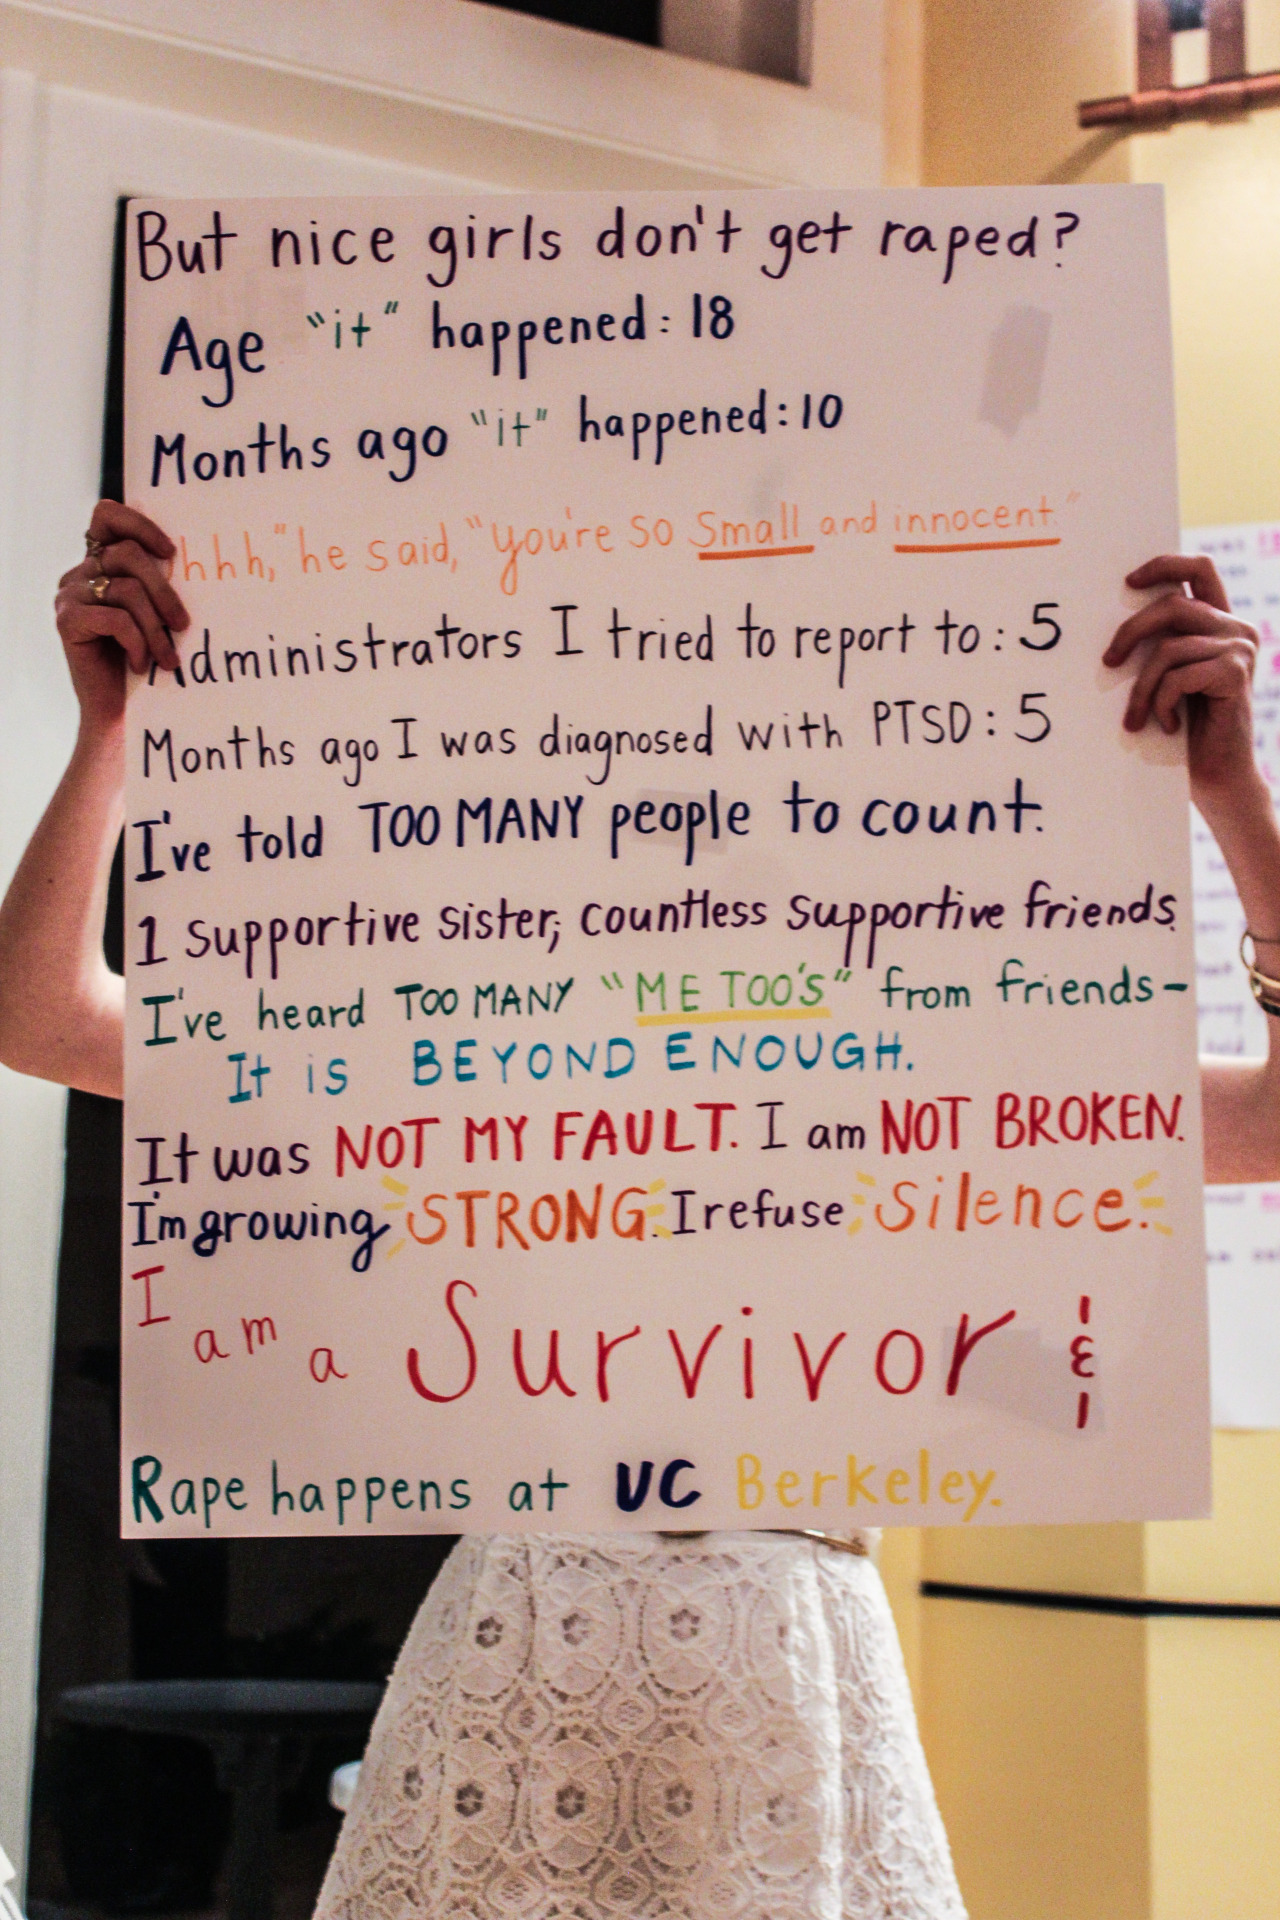 But nice girls don't get raped?
Age "it" happened: 18
Months ago "it" happened: 10
hhh," he said, "you're so small and innocent."
Administrators I tried to report to: 5
Months ago I was diagnosed with PTSD: 5
I've told TOO MANY people to count.
1 supportive sister; countless supportive friends.
I've heard TOO MANY "ME TOO'S" from friends-
It is BEYOND ENOUGH.
It was NOT MY FAULT. I am NOT BROKEN.
I'm growing STRONG. I refuse Silence.
I am a Survivor &
Rape happens at UC Berkeley.